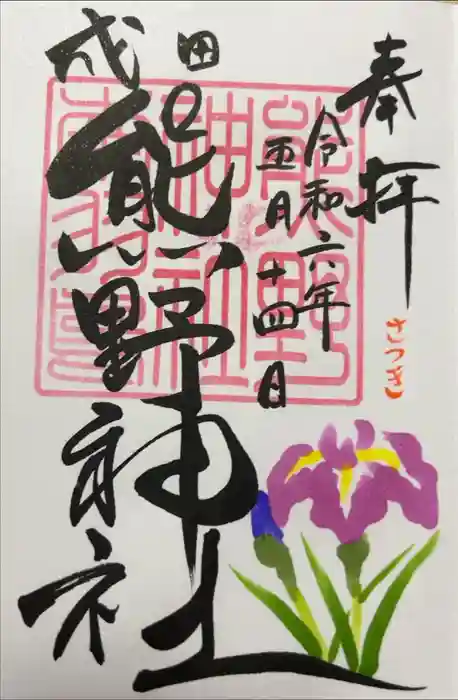 奉拝
さつき
令和六年
五月十四日
成田
熊野神社
熊野
神社